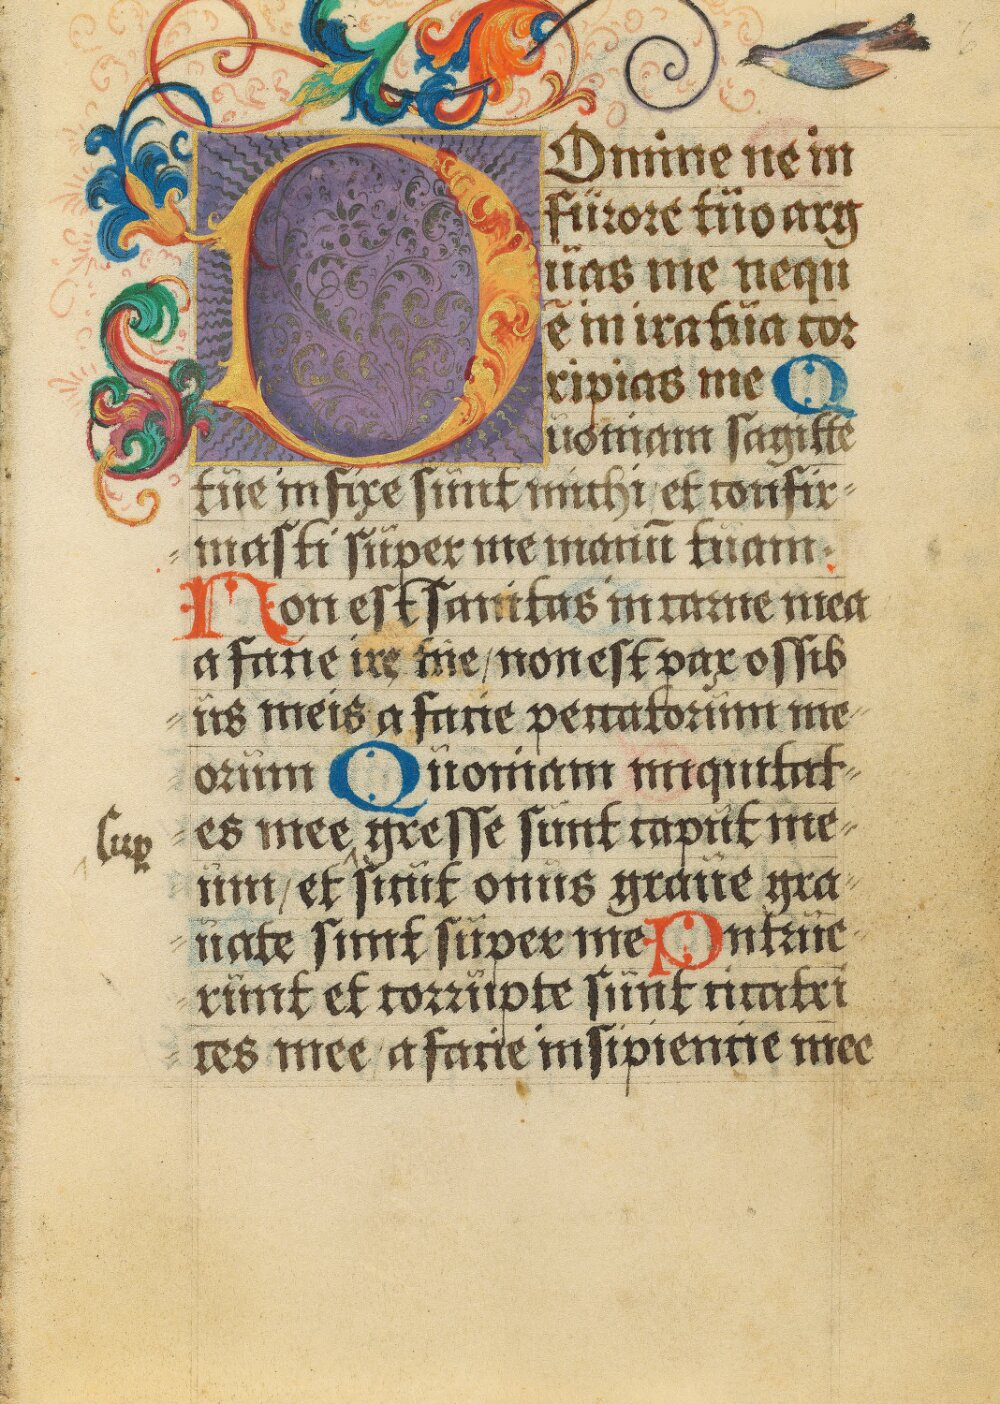 DOmine ne in
furore tuo arg
uas me nequ
e in ira tua cor
ripias me Q
uoniam sagitte
tue infixe sunt michi / et confir-
masti super me manū tuam.
Non est sanitas in carne mea
a facie ire tue / non est pax ossib
us meis a facie peccatorum me-
orum Quoniam iniquitat-
es mee gresse sunt caput me-
sup
um / et sicut onus graue gra-
uate sunt super me Putrue-
runt et corrupte sunt cicatri
ces mee / a facie insipientie mee